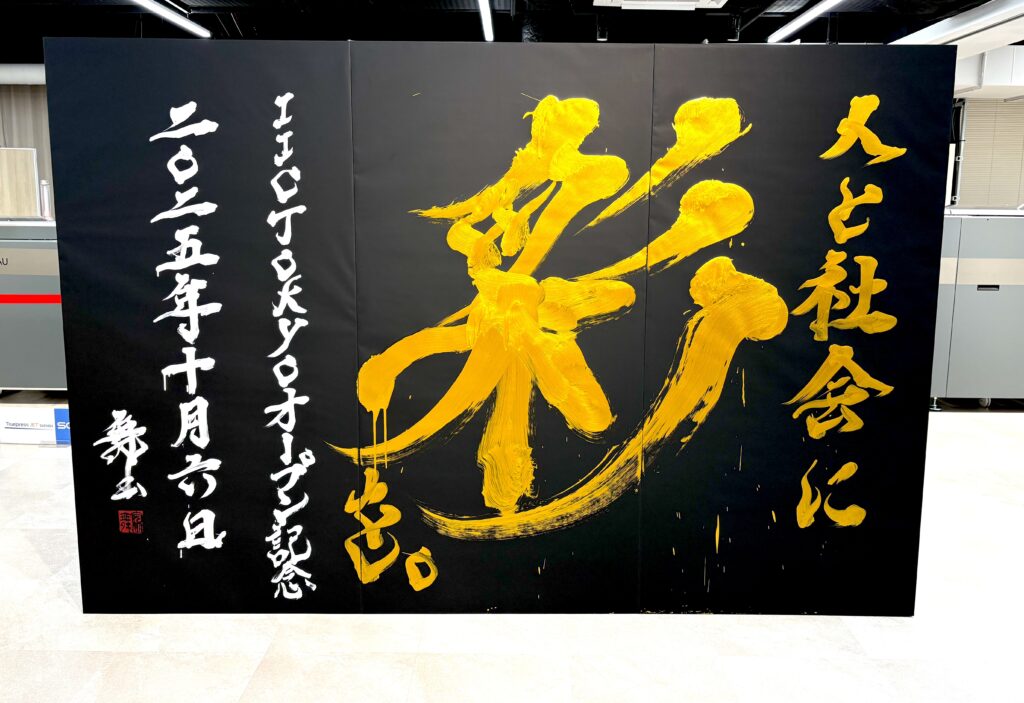 人と社会に
彩
を。
IICTOKYOオープン記念
二〇二五年十月六日
Truepress JET